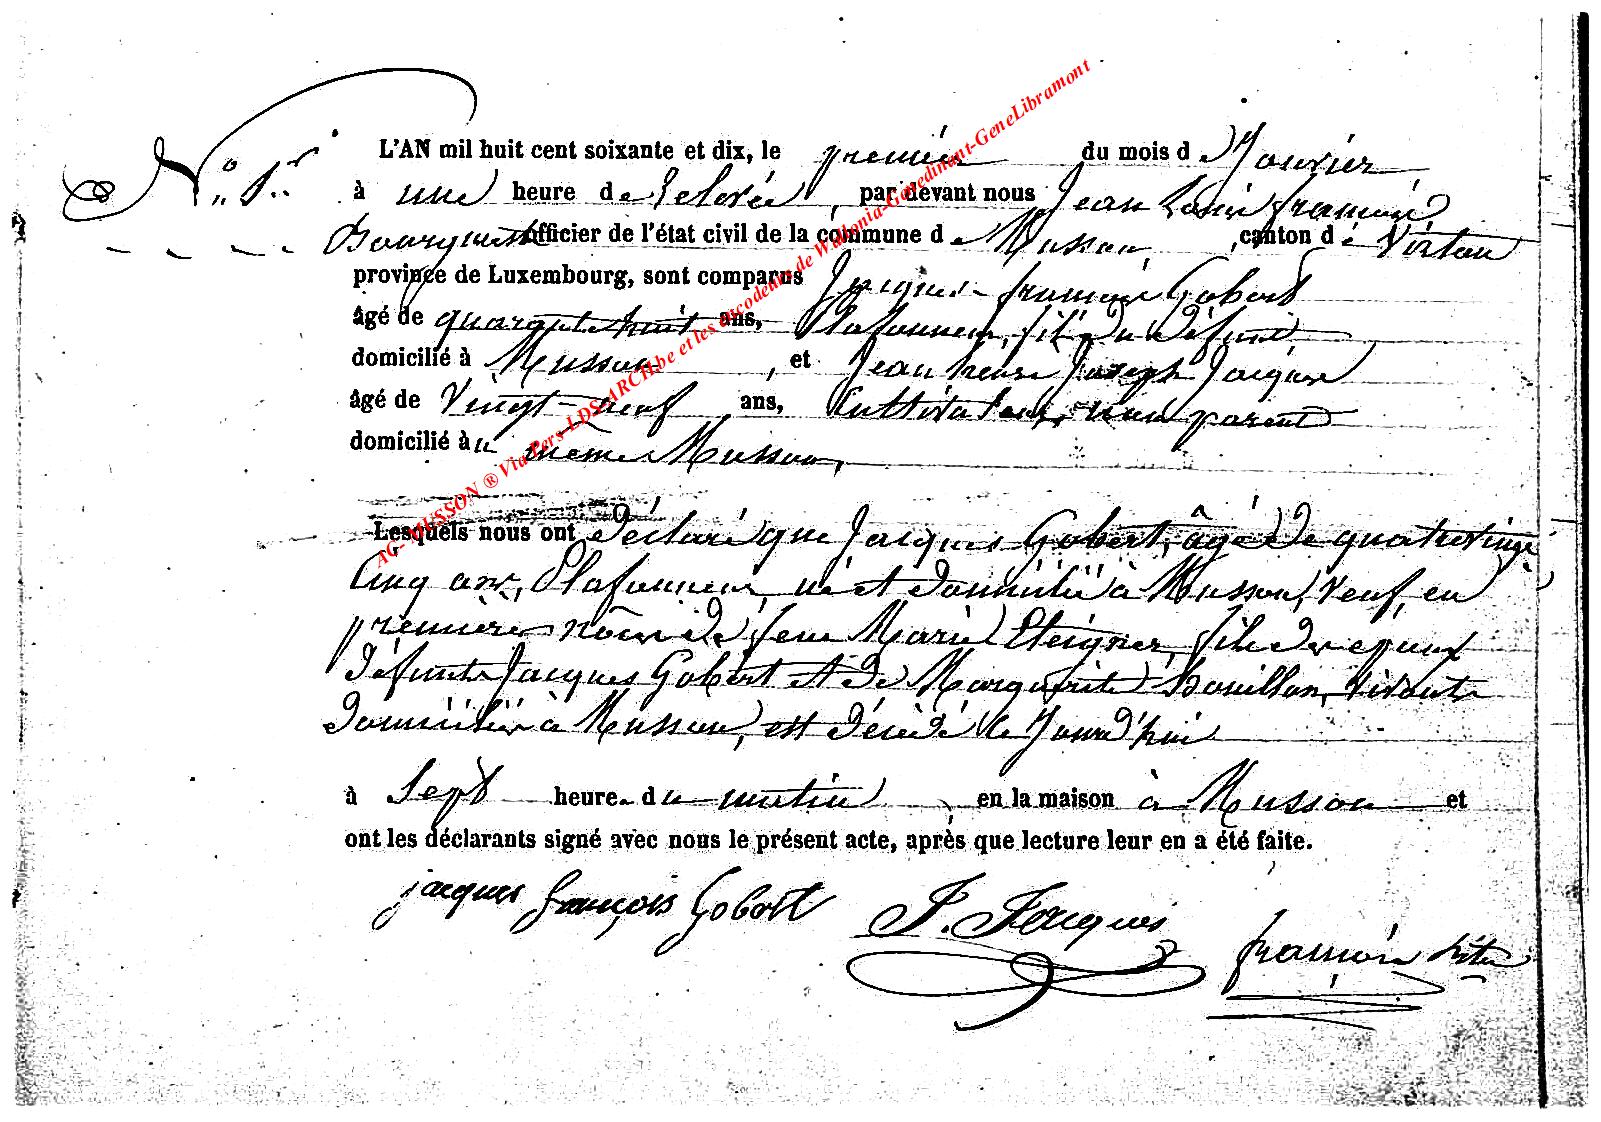 N° 1er
L'AN mil huit cent soixante et dix, le premier du mois de Janvier
à une heure de relevée, par devant nous Jean Louis françois
Bourguest officier de l'état civil de la commune de Musson, canton de Virton
province de Luxembourg, sont comparus Jacques françois Gobert
âgé de quarante huit ans, Plafonneur, fils du défunt
domicilié à Musson, et Jean henri Joseph Jacques
âgé de vingt-neuf ans, Cultivateur, non parent
domicilié à même Musson,
Lesquels nous ont déclaré que Jacques Gobert, âgé de quatrevingt
Cinq ans, Plafonneur, né et domicilié à Musson, veuf, en
première noces de feue Marie Eteigner, fils des époux
défunts Jacques Gobert et de Marguerite Bouillon, vivants
domiciliés à Musson, est décédé ce Jourd'hui
à Sept heure du matin en la maison à Musson et
ont les déclarants signé avec nous le présent acte, après que lecture leur en a été faite.
jacques françois Gobert J. Jacques françois
AG-MUSSON ® Via Pers-LDS-ARCH.be et les encodeurs de Wallonia-Genedinant-GeneLibramont